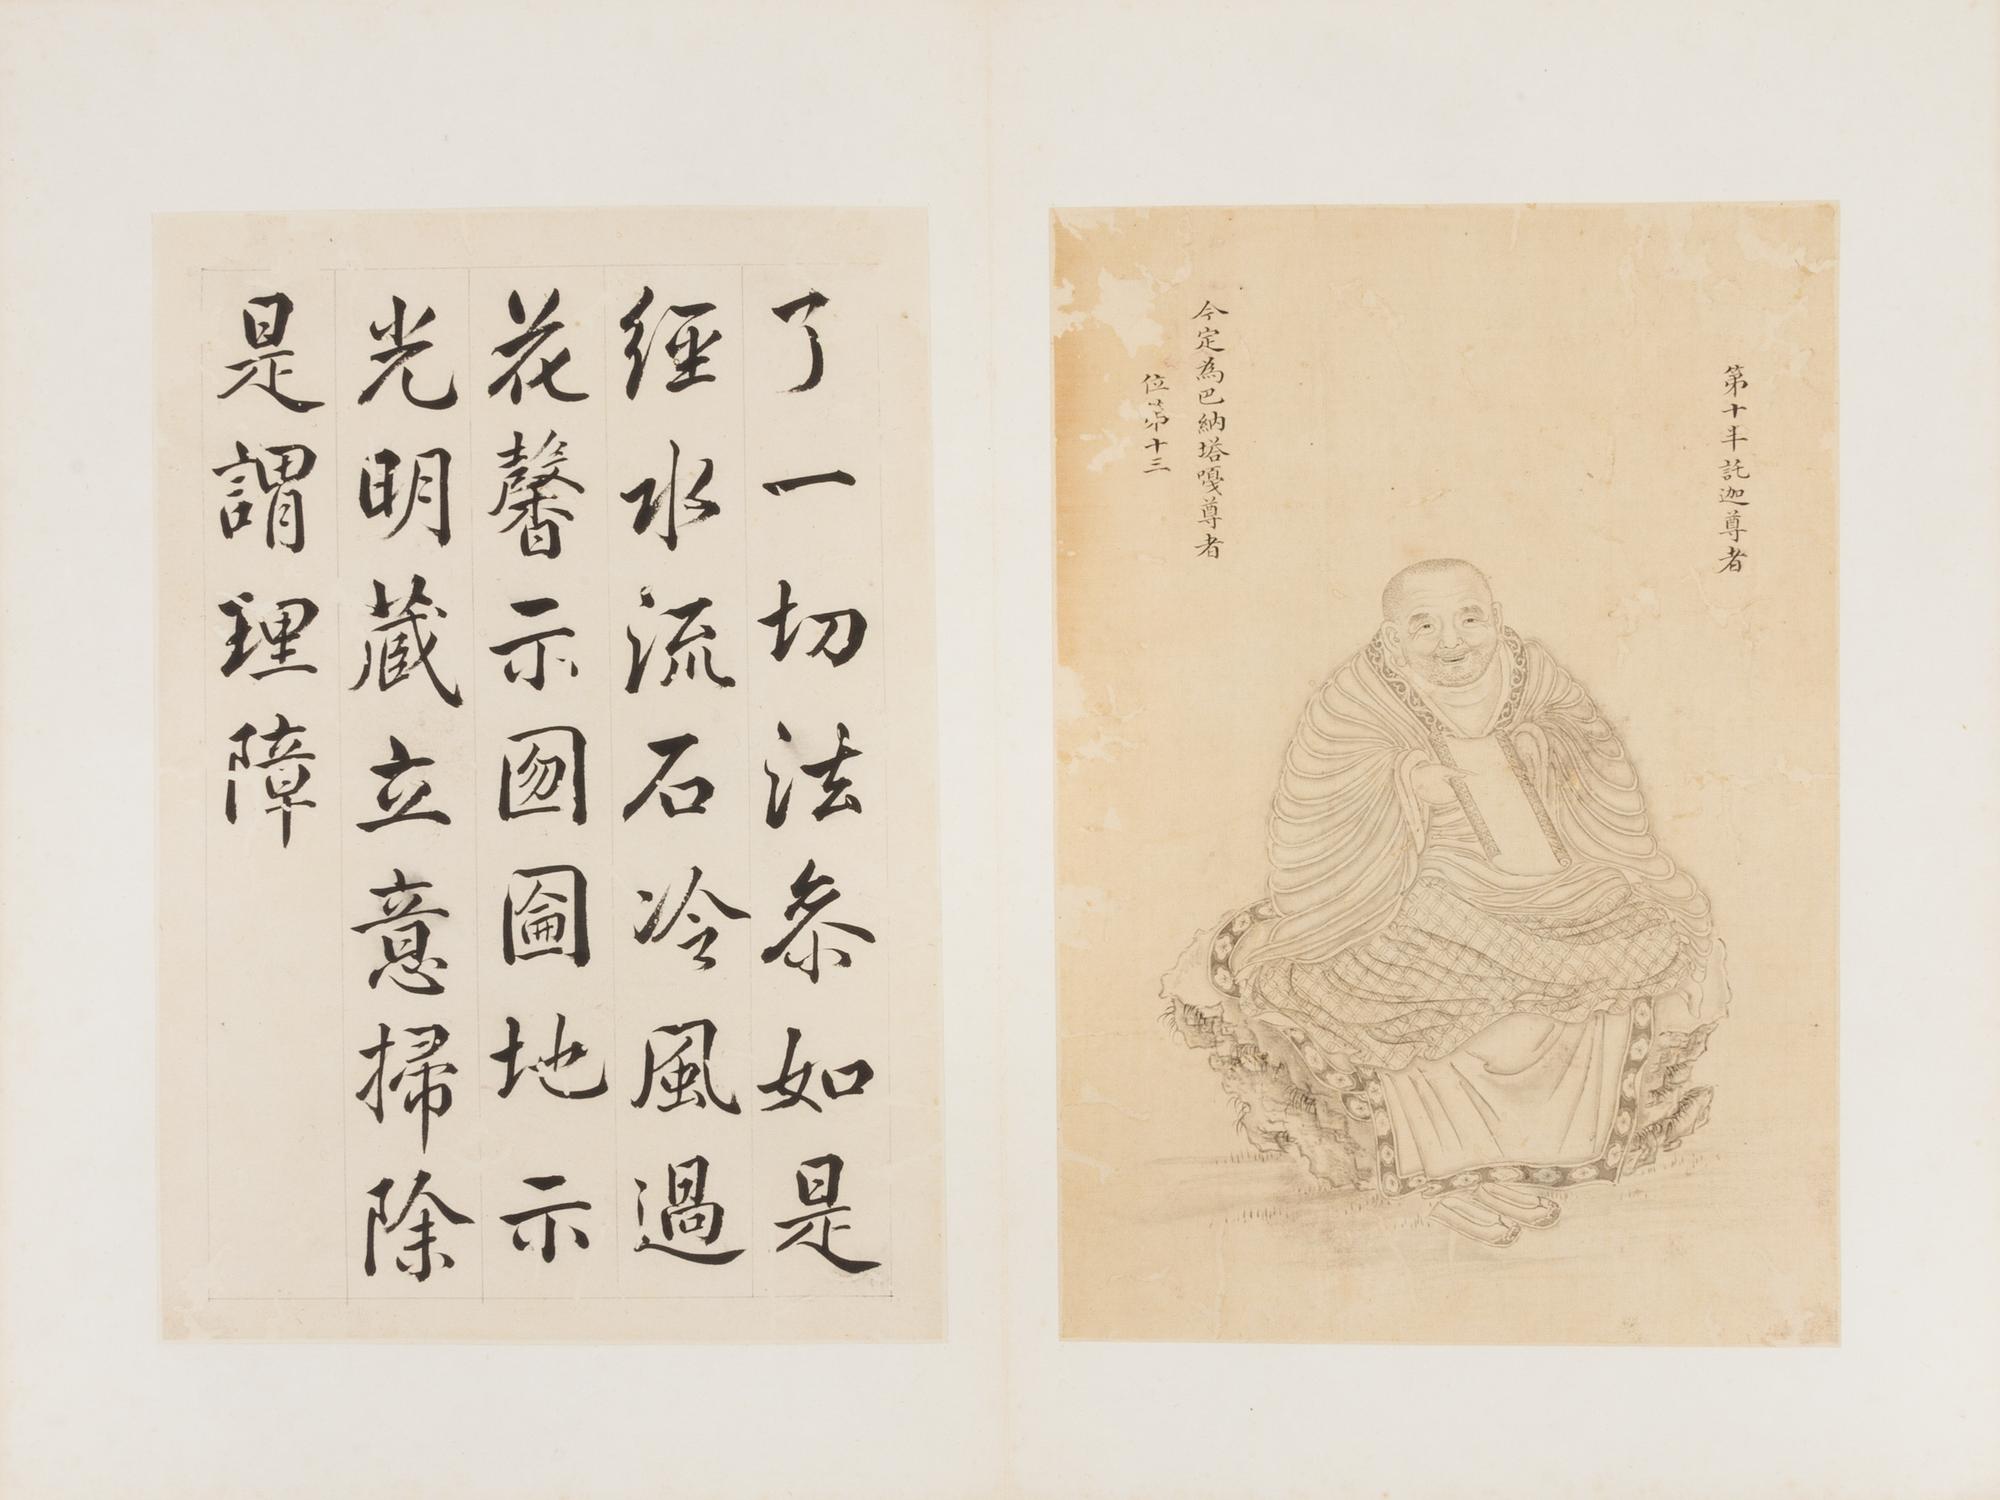 第十半託迦尊者
今定為巴納塔嘎尊者
位第十三
了一切法叅如是
經水流石冷風過
花馨示囫圇地示
光明藏立意掃除
是謂理障